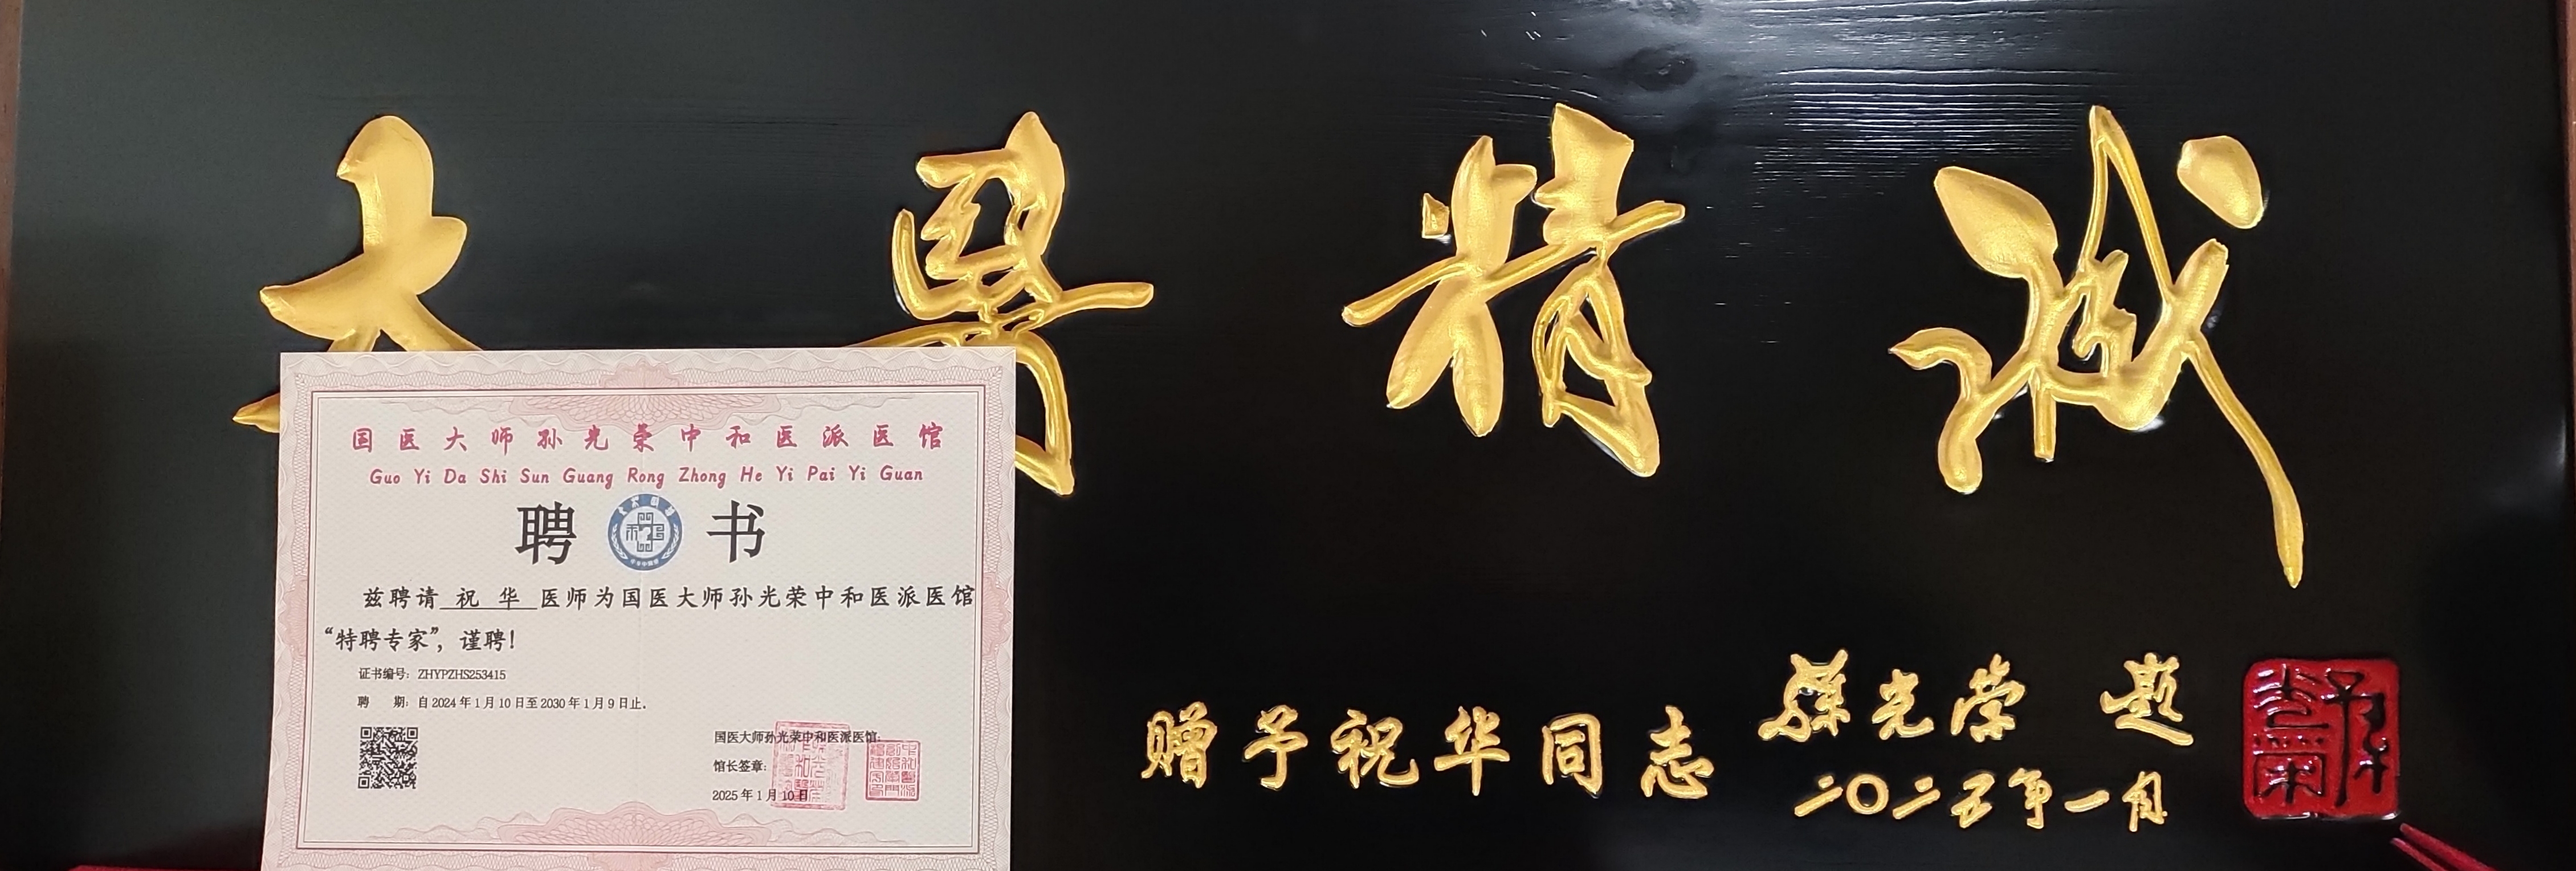 大醫精誠
孫光荣 题
赠予祝华同志
二〇二五年一月
国医大师孙光荣中和医派医馆
Guo Yi Da Shi Sun Guang Rong Zhong He Yi Pai Yi Guan
聘 书
兹聘请 祝 华 医师为国医大师孙光荣中和医派医馆
“特聘专家”，谨聘！
证书编号：ZHYPZHS253415
聘 期：自2024年1月10日至2030年1月9日止。
国医大师孙光荣中和医派医馆：
馆长签章：
2025年1月10日